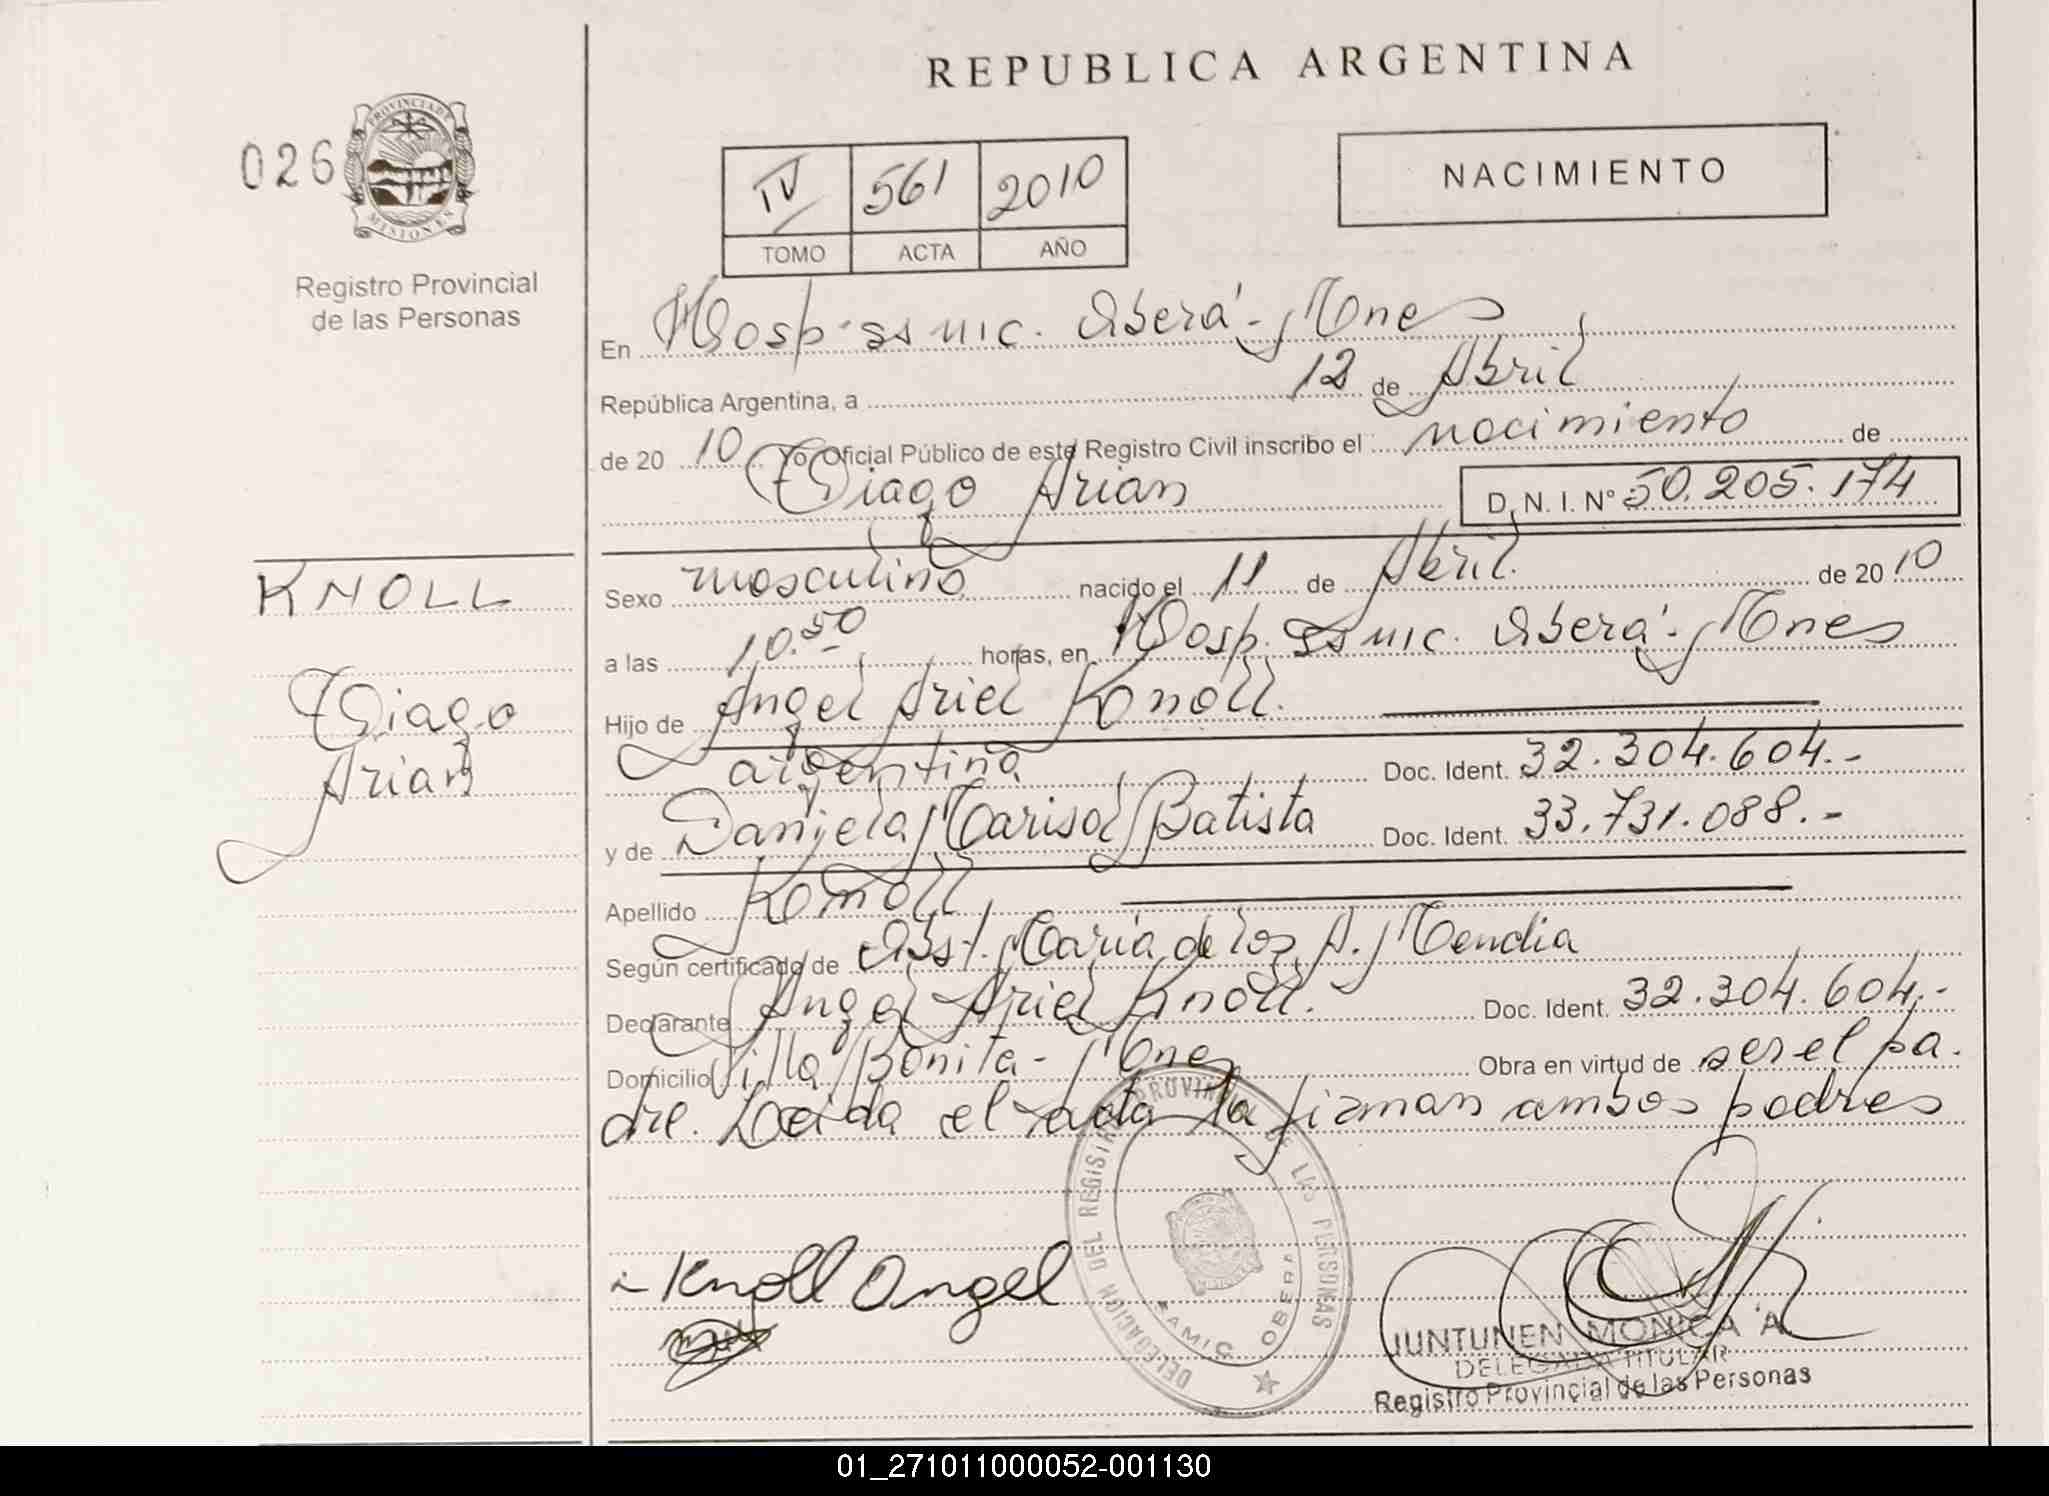 REPUBLICA ARGENTINA
026
PROVINCIA DE
MISIONES
Registro Provincial
de las Personas
IV 561 2010
TOMO ACTA AÑO
NACIMIENTO
En Hosp. ss mic. Oberá - Mnes
República Argentina, a 12 de Abril
de 20 10 Yo Oficial Público de este Registro Civil inscribo el nacimiento de
Tiago Arian D.N.I. N° 50.205.174
KNOLL
Tiago
Arian
Sexo masculino nacido el 11 de Abril de 20 10
a las 10.50 horas, en Hosp. ss mic. Oberá - Mnes
Hijo de Angel Ariel Knoll.
argentina Doc. Ident. 32.304.604.-
y de Daniela Marisol Batista Doc. Ident. 33.731.088.-
Apellido Knoll
Según certificado de Obst. María de los A. Mendia
Declarante Angel Ariel Knoll. Doc. Ident. 32.304.604.-
Domicilio Villa Bonita - Mnes Obra en virtud de ser el pa.
dre. Leida el acta la firman ambos padres
DELEGACION DEL REGISTRO PROVINCIAL DE LAS PERSONAS
OBERA
Knoll Angel
JUNTUNEN MONICA A.
DELEGADA TITULAR
Registro Provincial de las Personas
01_271011000052-001130